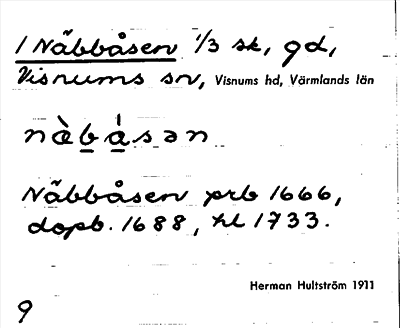 1 Näbbåsen 1/3 sk, gd,
Visnums sn, Visnums hd, Värmlands län
nä̀b̲ǻ̲sən
Näbbåsen prb 1666,
dopb. 1688, hl 1733.
Herman Hultström 1911
9